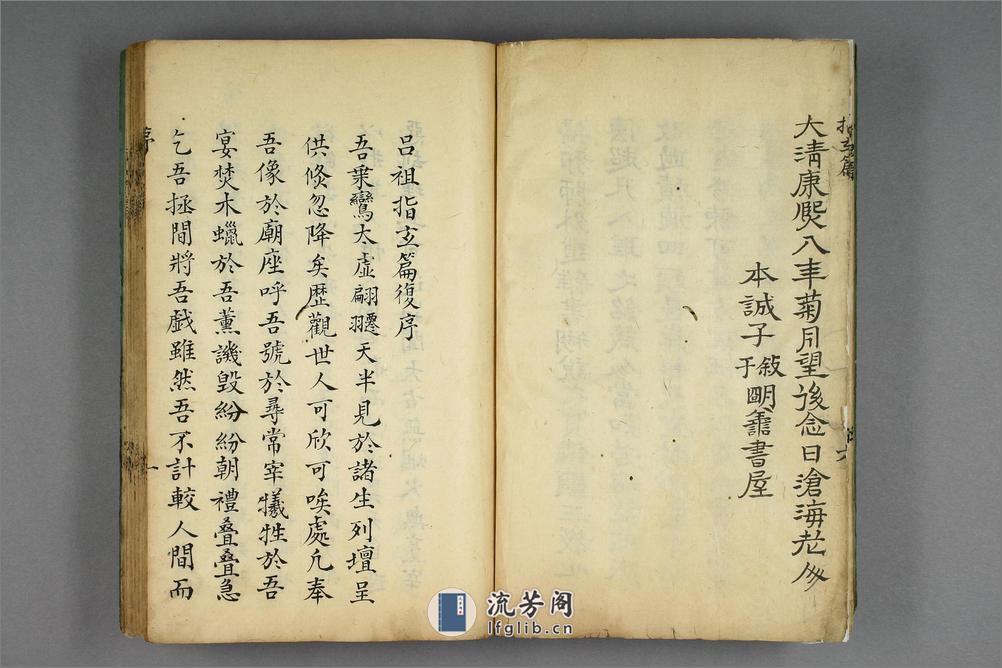 指玄篇
大清康熙八年菊月望後念日滄海老
本誠子敍
于明書屋
呂祖指玄篇復序
吾乗鸞太虛翩翾天半見於諸生列壇呈
供倐忽降矣歴觀世人可欣可唉處凢奉
吾像於廟座呼吾號於尋常宰犠牲於吾
宴焚木蠟於吾薰譏毀紛紛朝禮叠叠急
乞吾拯間將吾戯雖然吾不計較人間而
流芳阁
lfglib.cn